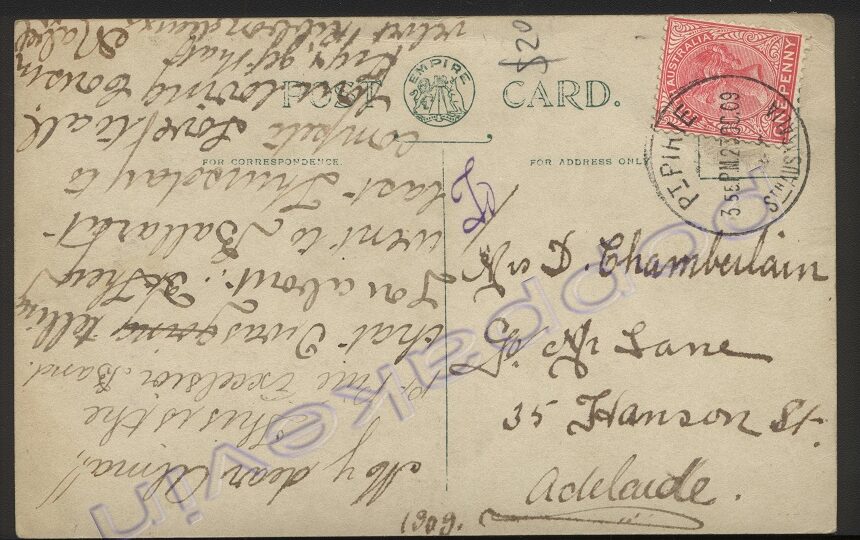 POST CARD.
EMPIRE
FOR CORRESPONDENCE.
FOR ADDRESS ONLY
SOUTH AUSTRALIA
PENNY
PT PIRIE
3 55 PM 25 OC 09
STH AUSTRALIA
$20
To
Mrs D. Chamberlain
C/o Mr Lane
35 Hanson St.
Adelaide.
1909.
My dear Alma!!
This is the
Pt Pirie Excelsior Band.
that I was going telling
You about. They
went to Ballarat
last Thursday to
compete Love to all,
Your loving Cousin
Mabel
velvet ribbon
poppakevin